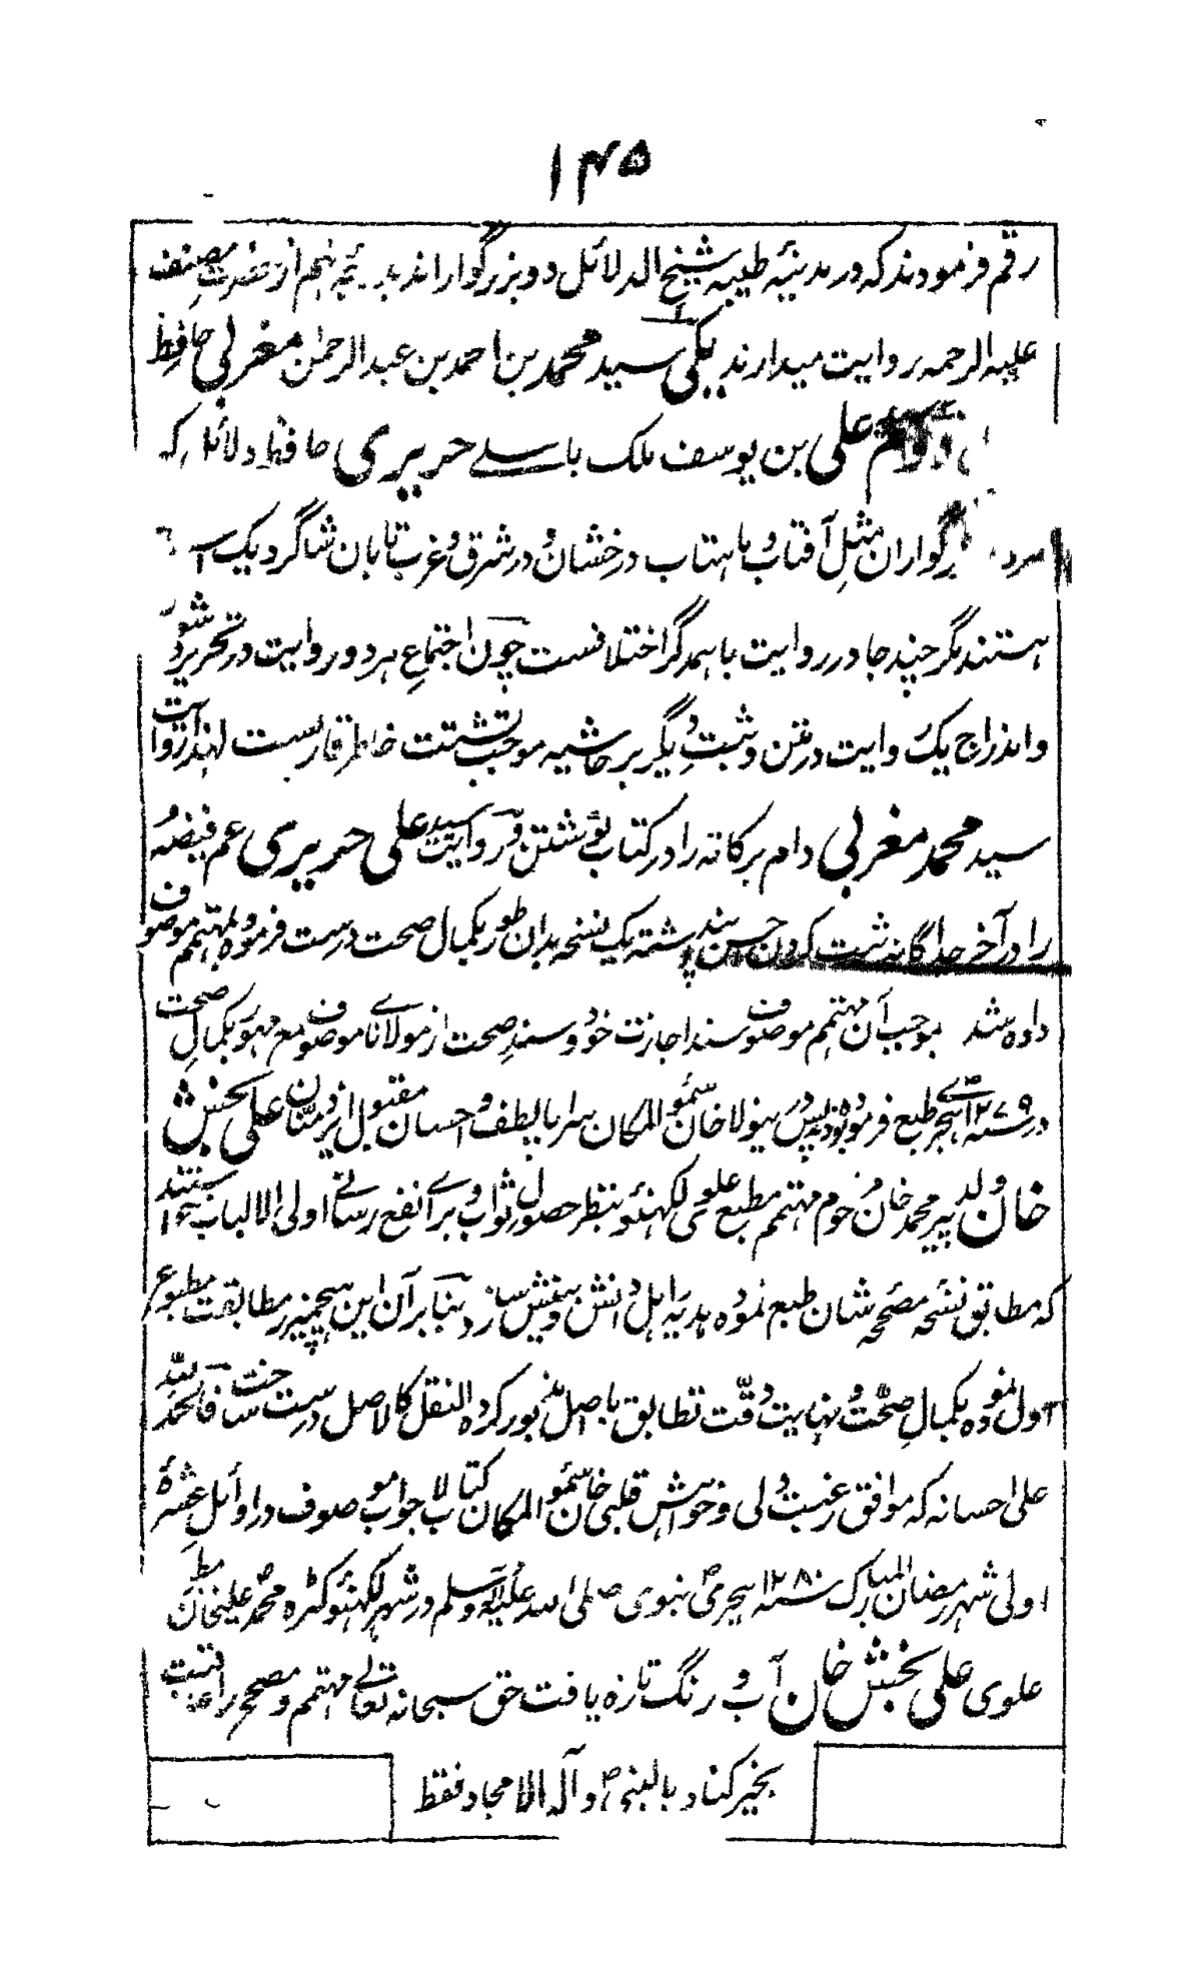 ۱۴۵
رقم فرمودند که در مدینۂ طیبہ شیخ الدلائل دو بزرگوار اند بدرجۂ نہم از حضرت مصنف
علیہ الرحمہ روایت میدارند یکی سید محمد بن احمد بن عبدالرحمٰن مغربی حافظ
علی بن یوسف ملک باسلے حریری حافظ دلائل کہ
مثل آفتاب و ماہتاب درخشان و در شرق و غرب تابان شاگرد یک
ہستند مگر چند جا در روایت باہمدگر اختلافست چون اجتماع ہر دو روایت در تحریر دشوار
و اندراج یک روایت در متن و ثبت دیگر بر حاشیہ موجب تشتت خاطر قاریست لہذا روایت
سید محمد مغربی دام برکاتہ را در کتاب نوشتن و روایت سید علی حریری عم فیضہ
را در آخر جداگانہ ثبت کردن حسن پنداشتہ یک نسخہ بدان طور بکمال صحت درست فرمودہ بمہتمم موصوف
دادہ شد بموجب آن مہتمم موصوف سند اجازت خود و سند صحت از مولانای موصوف مع مہر بکمال صحت
در ۱۲۷۹ ہجری طبع فرمودہ بودند پس درینولا خان سمو المکان سراپا لطف و احسان مقبول ایزد منان علی بخش
خان ولد پیر محمد خان مرحوم مہتمم مطبع علوی لکہنؤ بنظر حصول ثواب و برائے نفع رسانی اولی الالباب خواستند
کہ مطابق نسخہ مصححہ شان طبع نمودہ ہدیہ اہل دانش و بینش سازد بنابر آن این ہیچمیرز مطابقت مطبوعہ
اول نمودہ بکمال صحت و نہایت دقت تطابق باصل مزبور کردہ النقل کالاصل درست ساخت فالحمد للہ
علی احسانہ کہ موافق رغبت دلی و خواہش قلبی خان سمو المکان کتاب لاجواب موصوف در اوائل عشرۂ
اولی شہر رمضان المبارک ۱۲۸۰ ہجری نبوی صلی اللہ علیہ وآلہ وسلم در شہر لکہنؤ کٹرہ محمد علیخان مطبع
علوی علی بخش خان آب و رنگ تازہ یافت حق سبحانہ تعالی مہتمم و مصحح را عاقبت
بخیر کناد بالنبی و آلہ الامجاد فقط